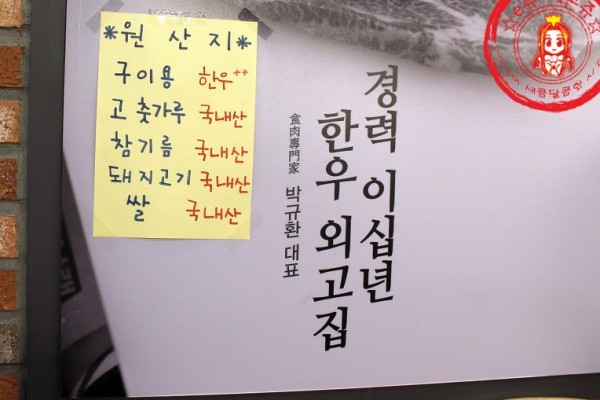 *원산지*
구이용 한우++
고춧가루 국내산
참기름 국내산
돼지고기 국내산
쌀 국내산
경력 이십년
한우 외고집
食肉專門家 박규환 대표